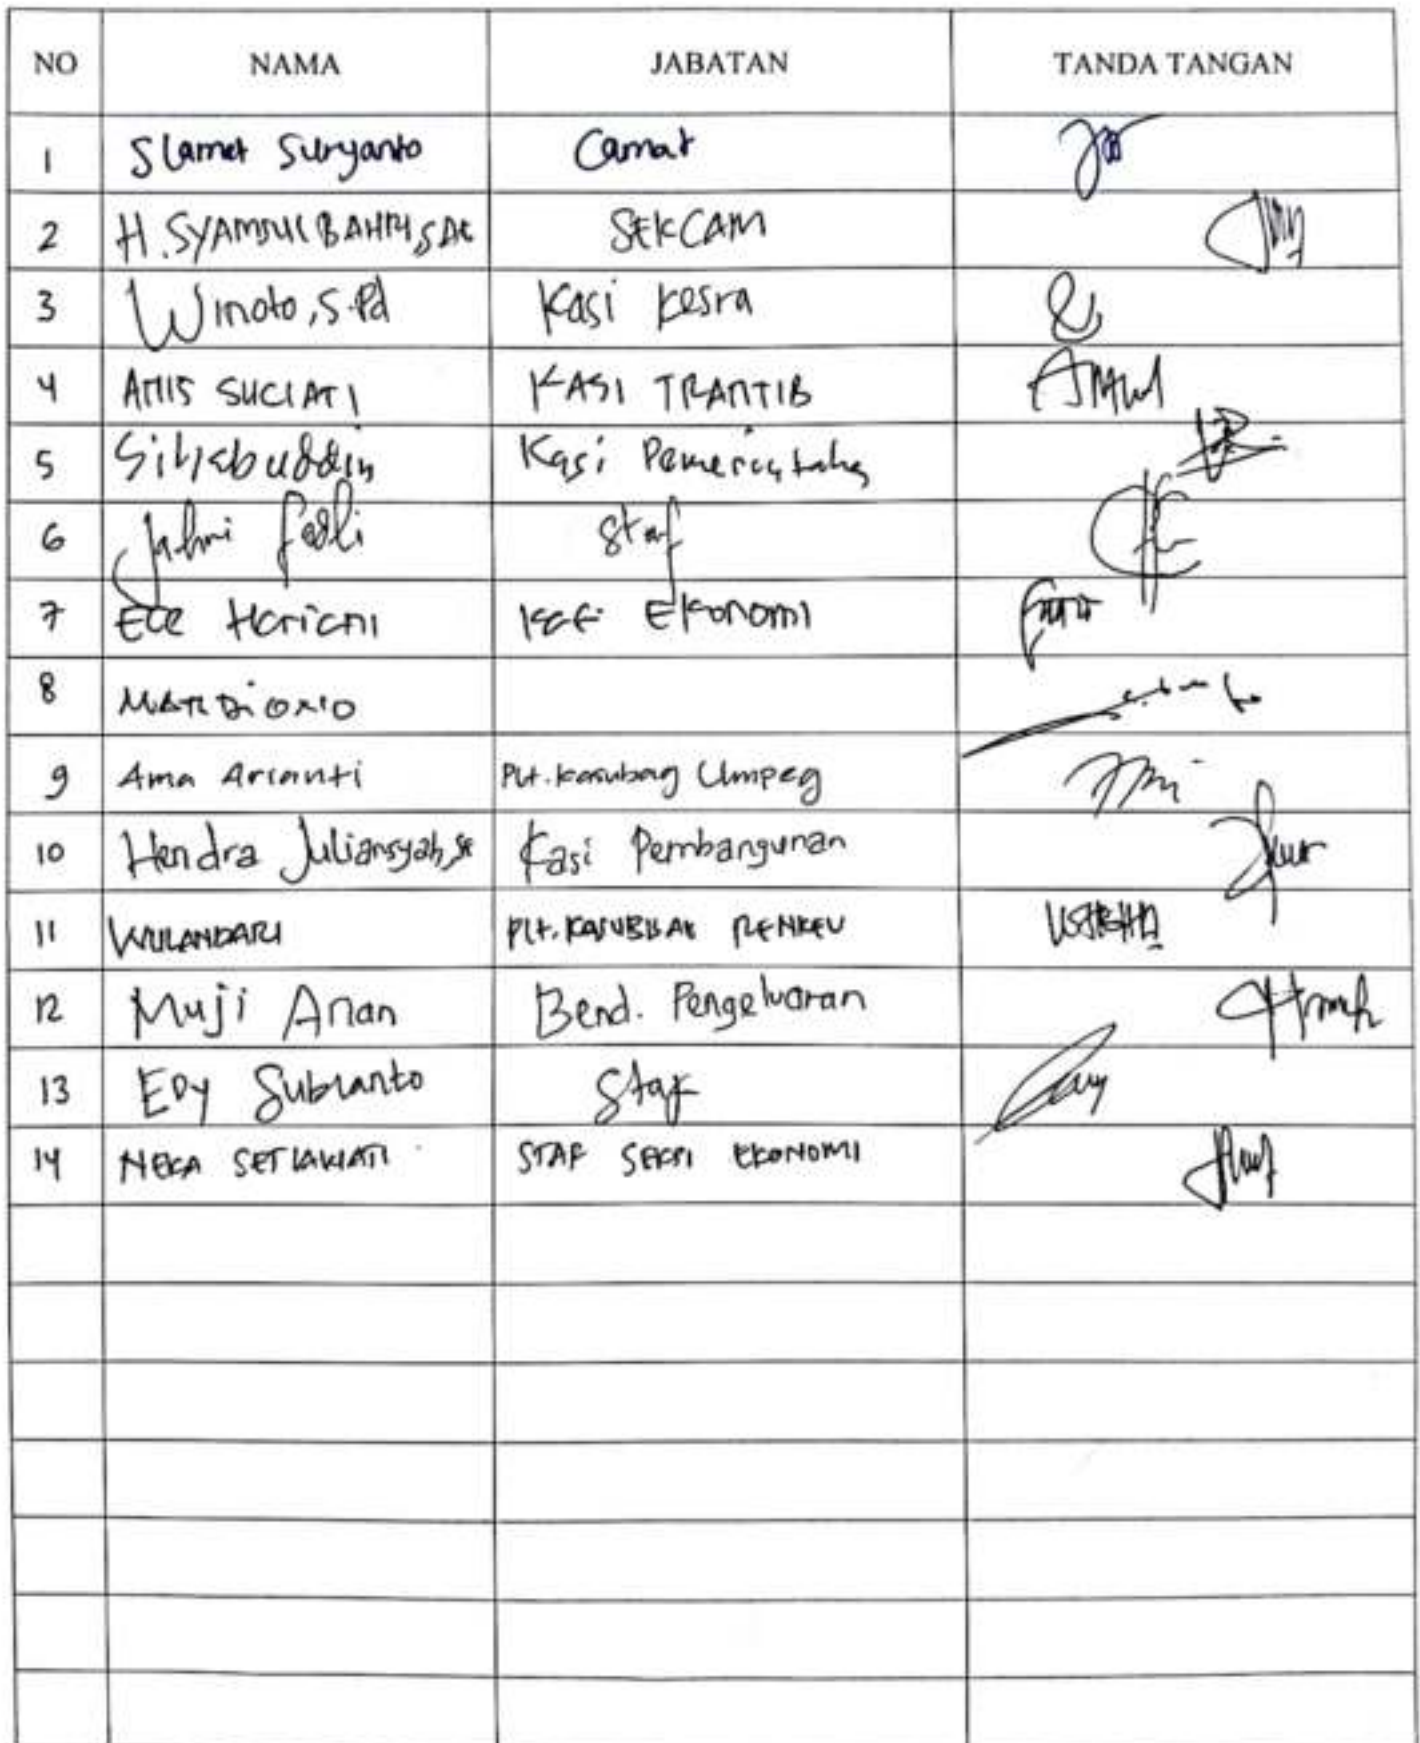 NO NAMA JABATAN TANDA TANGAN
1 Slamet Suryanto Camat
2 H. SYAMSUL BAHRI, SAG SEKCAM
3 Winoto, S.Pd Kasi Kesra
4 ANIS SUCIATI KASI TRANTIB
5 Sihabuddin Kasi Pemerintahan
6 Jahni Fadli Staf
7 Ece Hariani Kasi Ekonomi
8 MARDIONO
9 Ama Arianti Plt. Kasubag Umpeg
10 Hendra Juliansyah, SE Kasi Pembangunan
11 WULANDARI Plt. KASUBBAG RENKEU
12 Muji Anan Bend. Pengeluaran
13 EDY Subianto Staf
14 NEKA SETIAWATI STAF SEKSI EKONOMI